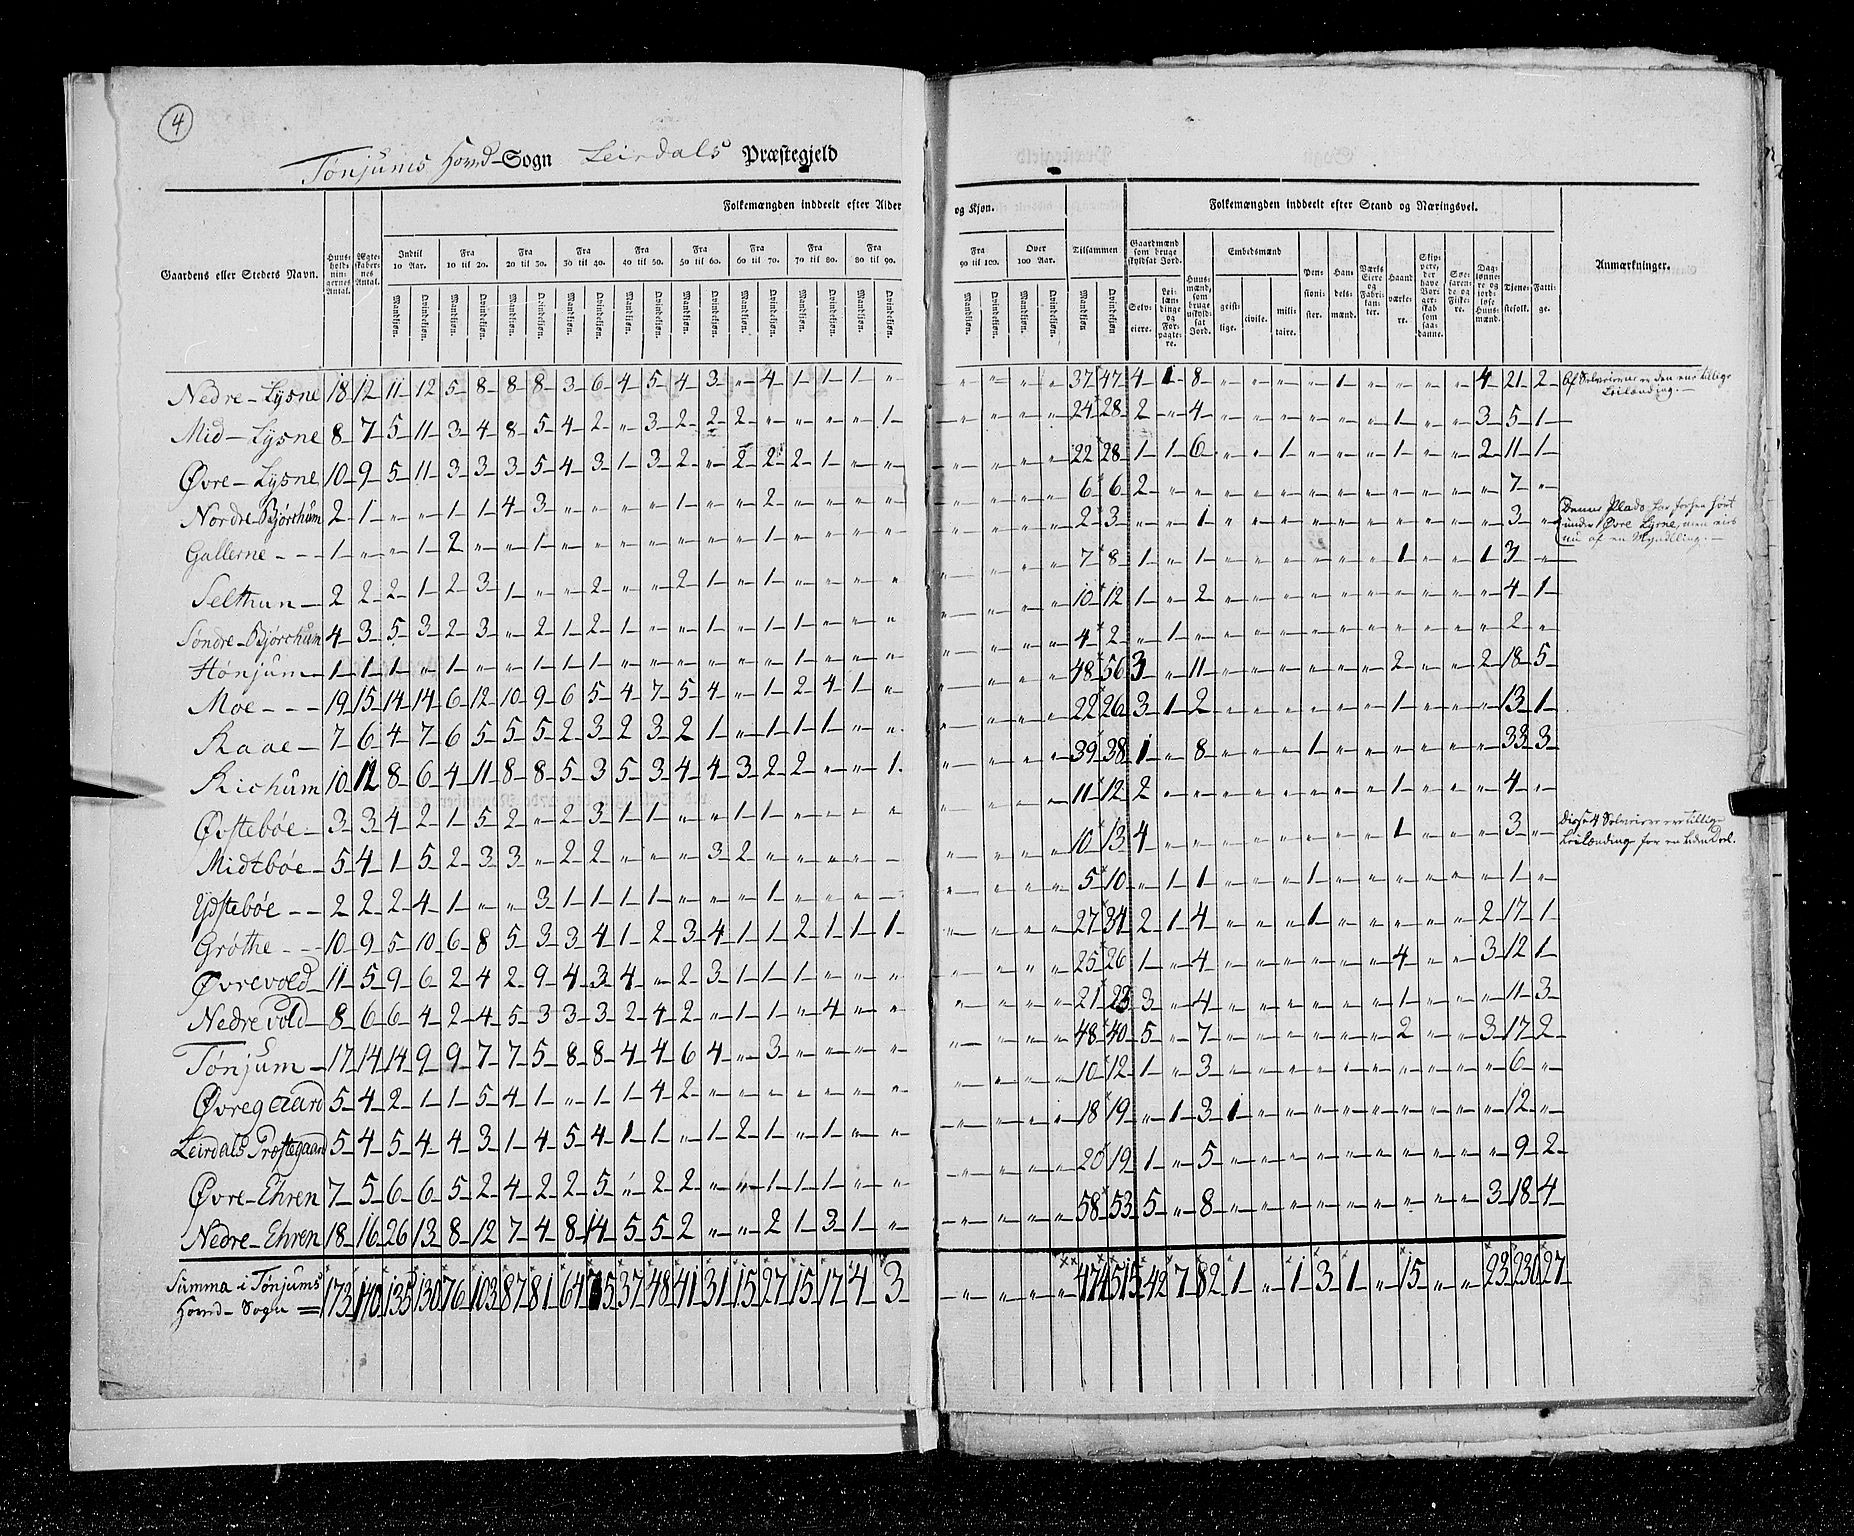 4
Tønjums Hoved-Sogn Leirdals Præstegjeld
Folkemængden inddeelt efter Alder og Kjøn. Tilsammen Folkemængden inddeelt efter Stand og Næringsvei.
Gaardens eller Stedets Navn. Huusholdningernes Antal. Ægteskabernes Antal. Indtil 10 Aar. Fra 10 til 20. Fra 20 til 30. Fra 30 til 40. Fra 40 til 50. Fra 50 til 60. Fra 60 til 70. Fra 70 til 80. Fra 80 til 90. Fra 90 til 100. Over 100 Aar. Gaardmænd som bruge skyldsat Jord. Huusmænd, som bruge uskyldsat Jord. Embedsmænd Pensionister. Handelsmænd. Værks Eiere og Fabrikanter. Haandværkere. Skippere, der have Borgerskab som saadanne. Søefarende og Fiskere. Daglønnere og jordløse Huusmænd. Tjenestefolk. Fattige. Anmærkninger.
Mandkjøn. Qvindekjøn. Mandkjøn. Qvindekjøn. Mandkjøn. Qvindekjøn. Mandkjøn. Qvindekjøn. Mandkjøn. Qvindekjøn. Mandkjøn. Qvindekjøn. Mandkjøn. Qvindekjøn. Mandkjøn. Qvindekjøn. Mandkjøn. Qvindekjøn. Mandkjøn. Qvindekjøn. Mandkjøn. Qvindekjøn. Mandkjøn. Qvindekjøn Selveiere. Leilændinge og Forpagtere. geistlige. civile. militaire.
Nedre-Lysne 18 12 11 12 5 8 8 8 3 6 4 5 4 3 " 4 1 1 1 " " " " " 37 47 4 1 8 " " " " 1 " " " " 4 21 2 Af Selveierne er den ene tillige Leilænding.
Mid-Lysne 8 7 5 11 3 4 8 5 4 2 " 3 2 2 2 " " " " 1 " " " " 24 28 2 " 4 " " " " " " 1 " " 3 5 1
Øvre-Lysne 10 9 5 11 3 3 3 5 4 3 1 3 2 " 2 2 2 1 " " " " " " 22 28 1 1 6 " " 1 " " " 1 " " 2 11 1
Nordre-Bjørchum 2 1 " " 1 1 4 3 " " " " 1 " " 2 " " " " " " " " 6 6 2 " " " " " " " " " " " " 7 "
Gallerne 1 " " 1 2 " " 1 " " " " " " " " 1 " " " " " " " 2 3 " " 1 " " " " " " " " " " 3 " Denne Plads har forhen hørt under Øvre Lysne, men eies nu af en Myndling.
Selthun 2 2 2 1 2 3 1 " " 2 " " 2 1 " 1 " " " " " " " " 7 8 1 " 1 " " " " " " 1 " " 1 3 "
Søndre-Bjørchum 4 3 5 3 2 3 " 2 1 2 1 " " 1 " 1 1 " " " " " " " 10 12 1 " 2 " " " " " " " " " " 4 1
Hønjum 1 1 1 " 1 " " 1 1 1 " " " " " " 1 " " " " " " " 4 2 " 1 " " " " " " " " " " " 2 "
Moe 19 15 14 14 6 12 10 9 6 5 4 7 5 4 " 1 2 4 1 " " " " " 48 56 3 " 11 " " " " " " 2 " " 2 18 5
Raae 7 6 4 7 6 5 5 5 2 3 2 3 2 1 " 1 1 1 " " " " " " 22 26 3 1 2 " " " " " " 1 " " " 13 1
Richum 10 12 8 6 4 11 8 8 5 3 5 3 4 4 3 2 2 " " 1 " " " " 39 38 1 " 8 " " " 1 " " " " " " 33 3
Østebøe 3 3 4 2 1 5 2 " 2 3 1 1 " " 1 1 " " " " " " " " 11 12 2 " " " " " " " " 1 " " " 4 "
Midtbøe 5 4 1 5 2 3 3 " 2 2 " " " 3 2 " " " " " " " " 10 13 4 " " " " " " " " 1 " " " 3 " Disse 4 Selveiere ere tillige Leilændinge for en liden Deel.
Ydstebøe 2 2 2 4 1 " " 3 1 1 1 1 " " " 1 " " " " " " " 5 10 " 1 1 " " " 1 " " " " " " 1 "
Grøthe 10 9 5 10 6 8 5 3 3 4 1 2 3 4 1 1 2 1 1 1 " " " " 27 34 2 1 4 " " " 1 " " " " " 2 17 1
Øvrevold 11 5 9 6 2 4 2 9 4 3 4 " 2 3 1 1 1 " " " " " " " 25 26 1 " 4 " " " " " " 4 " " 3 12 1
Nedrevold 8 6 6 4 2 4 5 3 3 3 2 4 2 " 1 1 " 4 " " " " " " 21 23 3 " 4 " " " " " " 1 " " " 11 3
Tønjum 17 14 14 9 9 7 7 5 8 8 4 4 6 4 " 3 " " " " " " " " 48 40 5 " 7 " " " " " " 2 " " 3 17 2
Øvregaard 5 4 2 1 1 5 4 1 " 1 1 4 2 " " " " " " " " " " " 10 12 1 " 3 " " " " " " " " " " 6 "
Leirdals Præstegaard 5 4 5 4 4 3 1 4 5 4 1 1 " 1 2 1 " 1 " " " " " " 18 19 " 1 3 1 " " " " " " " " " 12 "
Øvre-Ehren 7 5 6 6 5 2 4 2 2 5 " 2 2 " " 1 1 1 " " " " " " 20 19 1 " 5 " " " " " " " " " " 9 2
Nedre-Ehren 18 16 26 13 8 12 7 4 8 14 5 5 2 " " 2 1 3 1 " " " " " 58 53 5 " 8 " " " " " " " " " 3 18 4
Summa i Tønjums Hoved-Sogn = 173 140 135 130 76 103 87 81 64 75 37 48 41 31 15 27 15 17 4 3 " " " " 474 515 42 7 82 1 " 1 3 1 " 15 " " 23 230 27